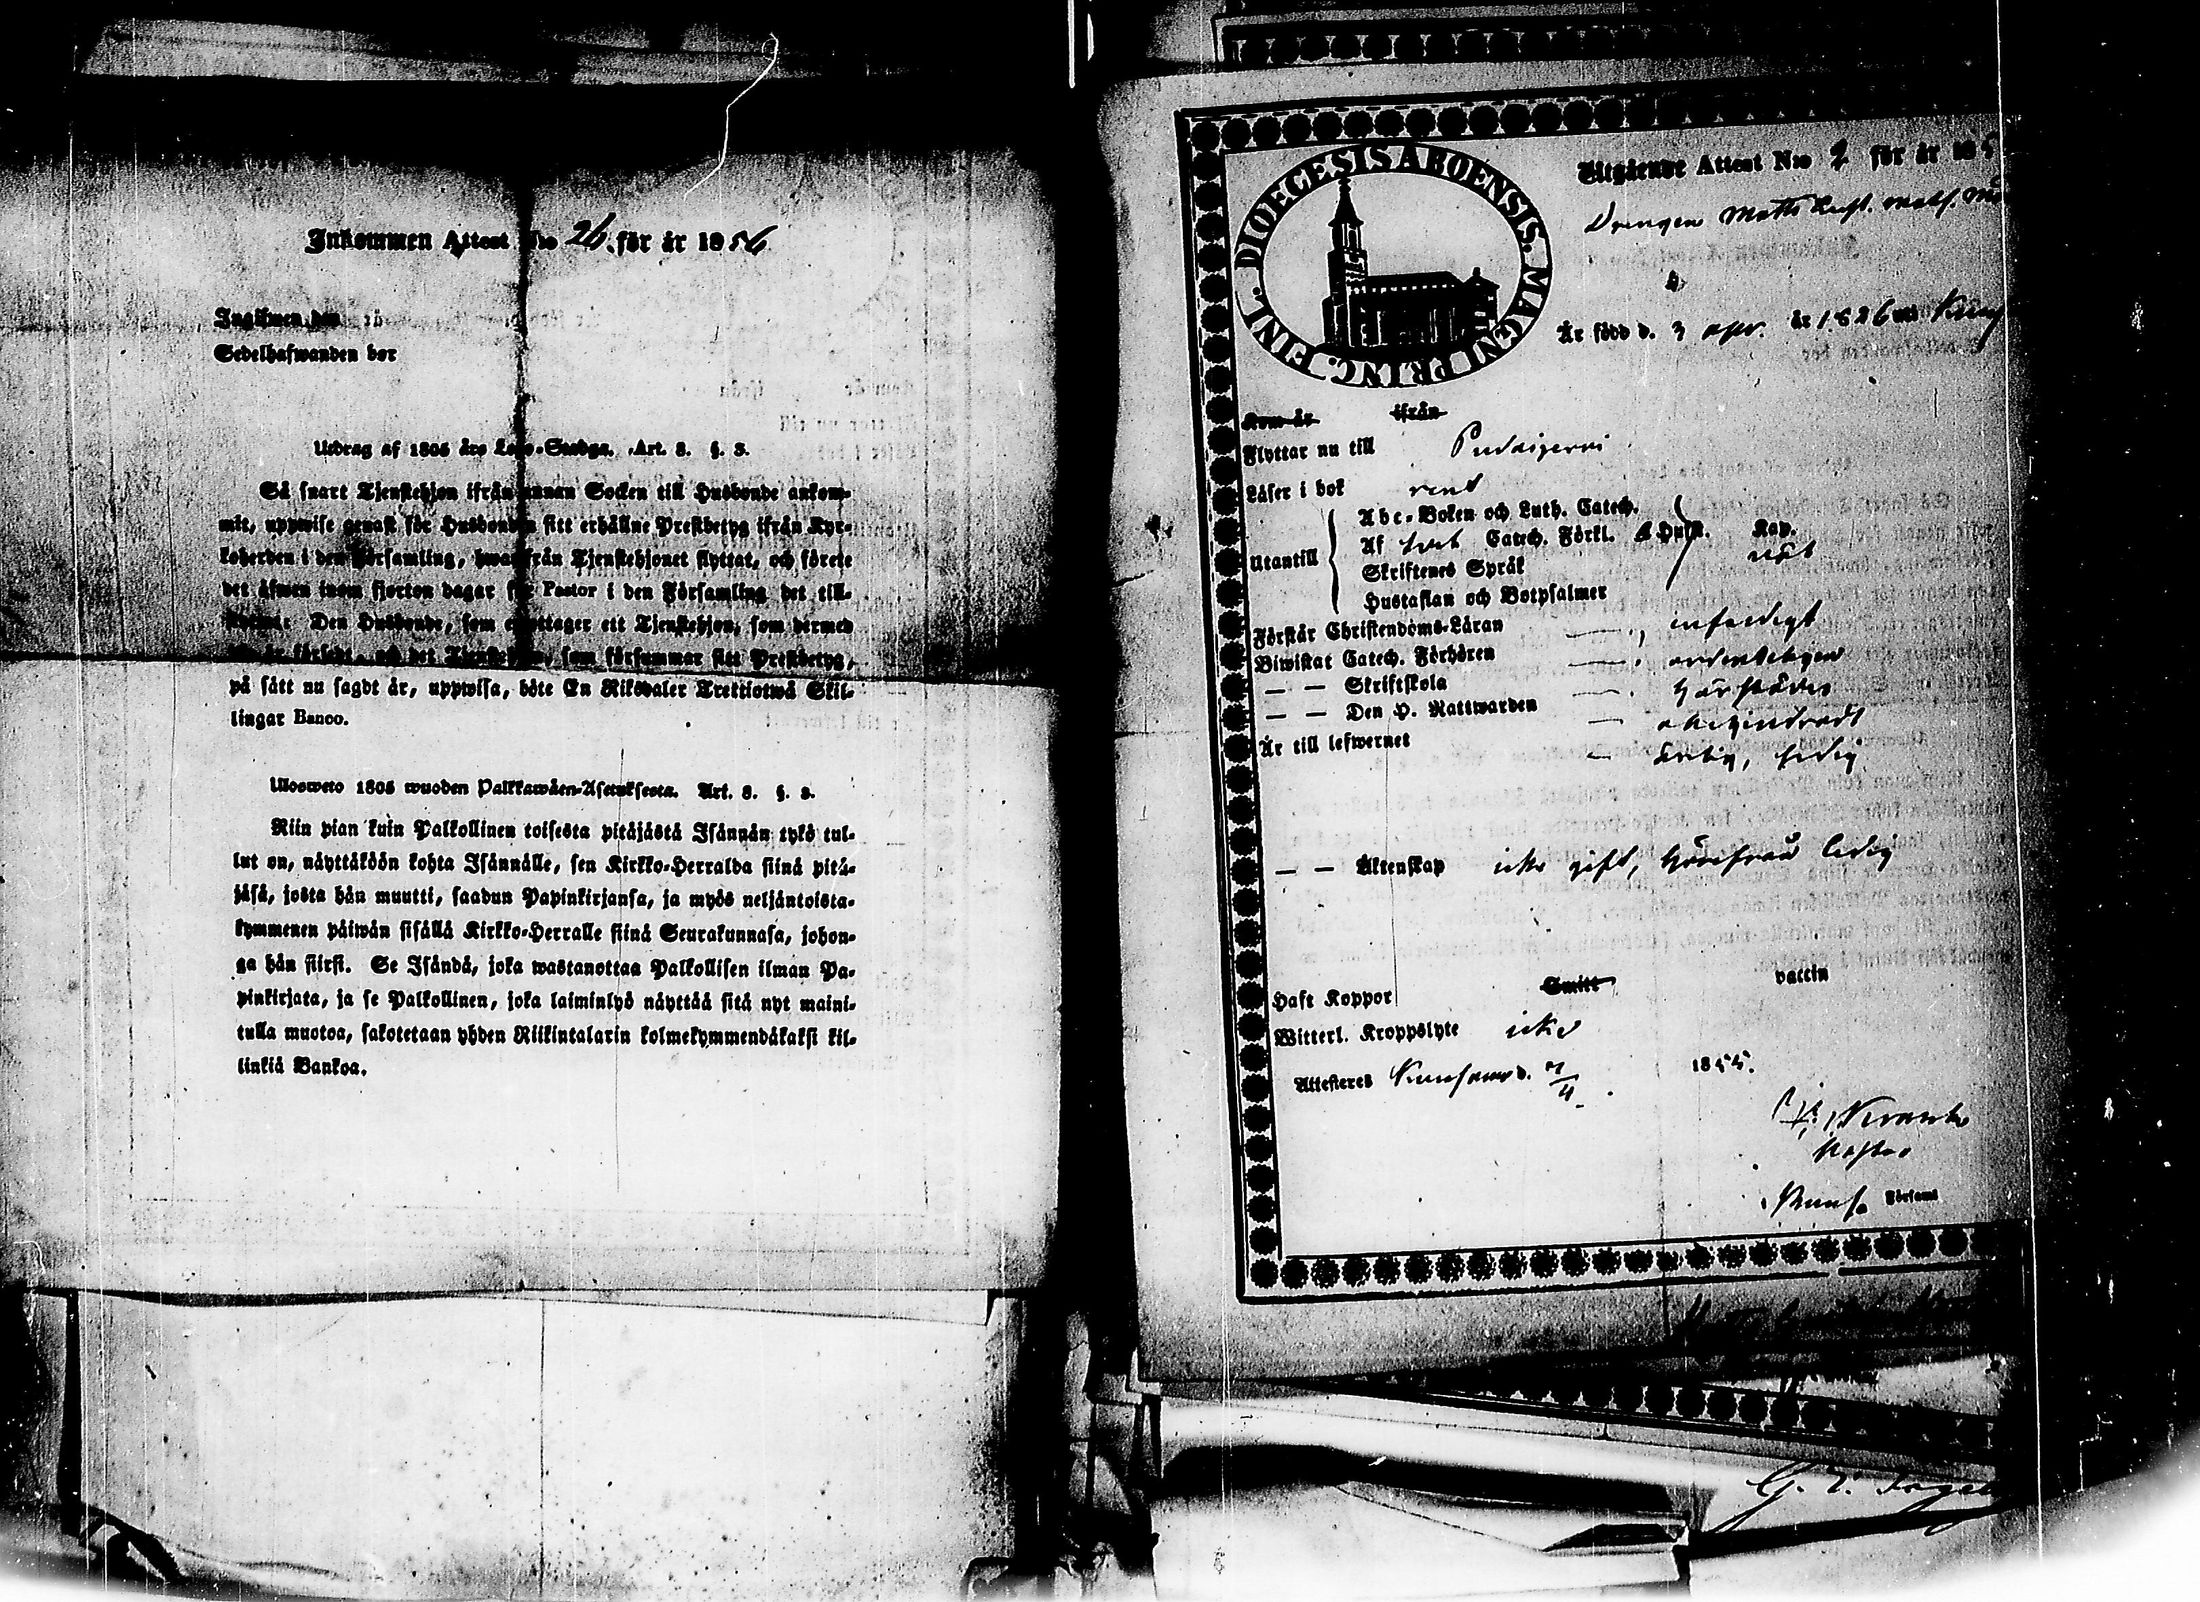 Inkommen Attest N:o 26. för år 1856
Ingifwen den
Sedelhafwanden bor
Utdrag af 1805 års Lego-Stadga. Art. 8. §. 3.
Så snart Tjenstehjon ifrån annan Socken till Husbonde ankom-
mit, uppwise genast för Husbonden sitt erhållne Prestbetyg ifrån Kyr-
koherden i den Församling, hwarifrån Tjenstehjonet flyttat, och förete
det äfwen inom fjorton dagar för Pastor i den Församling det till-
Den Husbonde, som emottager ett Tjenstehjon, som dermed
förledt, och det Tjenstehjon, som försummar sitt Prestbetyg,
på sätt nu sagdt är, uppwisa, böte En Riksdaler Trettiotwå Skil-
lingar Banco.
Ulosweto 1805 wuoden Palkkawäen-Asetuksesta. Art. 8. §. 3.
Niin pian kuin Palkollinen toisesta pitäjästä Isännän tykö tul-
lut on, näyttäköön kohta Isännälle, sen Kirkko-Herralda siinä pitä-
jäsä, josta hän muutti, saadun Papinkirjansa, ja myös neljäntoista-
kymmenen päiwän sisällä Kirkko-Herralle siinä Seurakunnasa, johon-
ga hän siirsi. Se Isändä, joka wastanottaa Palkollisen ilman Pa-
pinkirjata, ja se Palkollinen, joka laiminlyö näyttää sitä nyt maini-
tulla muotoa, sakotetaan yhden Riikintalarin kolmekymmendäkaksi kil-
linkiä Bankoa.
DIOECESIS ABOENSIS. MAGNI PRINC. FINL.
Utgående Attest N:o 2 för år 185
Drengen Matts
Är född d. 3 apr. år 1826 uti
Kom år ifrån
Flyttar nu till Pudasjervi
Läser i bok rent
Abc-Boken och Luth. Catech.
Utantill Af Catech. Förkl. Hufst. Kap.
Skriftenes Språk nöt
Hustaflan och Botpsalmer
Förstår Christendoms-Läran
Biwistat Catech. Förhören ordentligen
— — Skriftskola härstädes
— — Den H. Nattwarden ohehindradt
Är till lefwernet ärlig, sedig
— — Äktenskap icke gift, härifrån ledig
Haft Koppor Smitt vaccin
Witterl. Kroppslyte icke
Attesteras Kuusamo d. 7/4 1855.
Pastor
Kuus. Församl